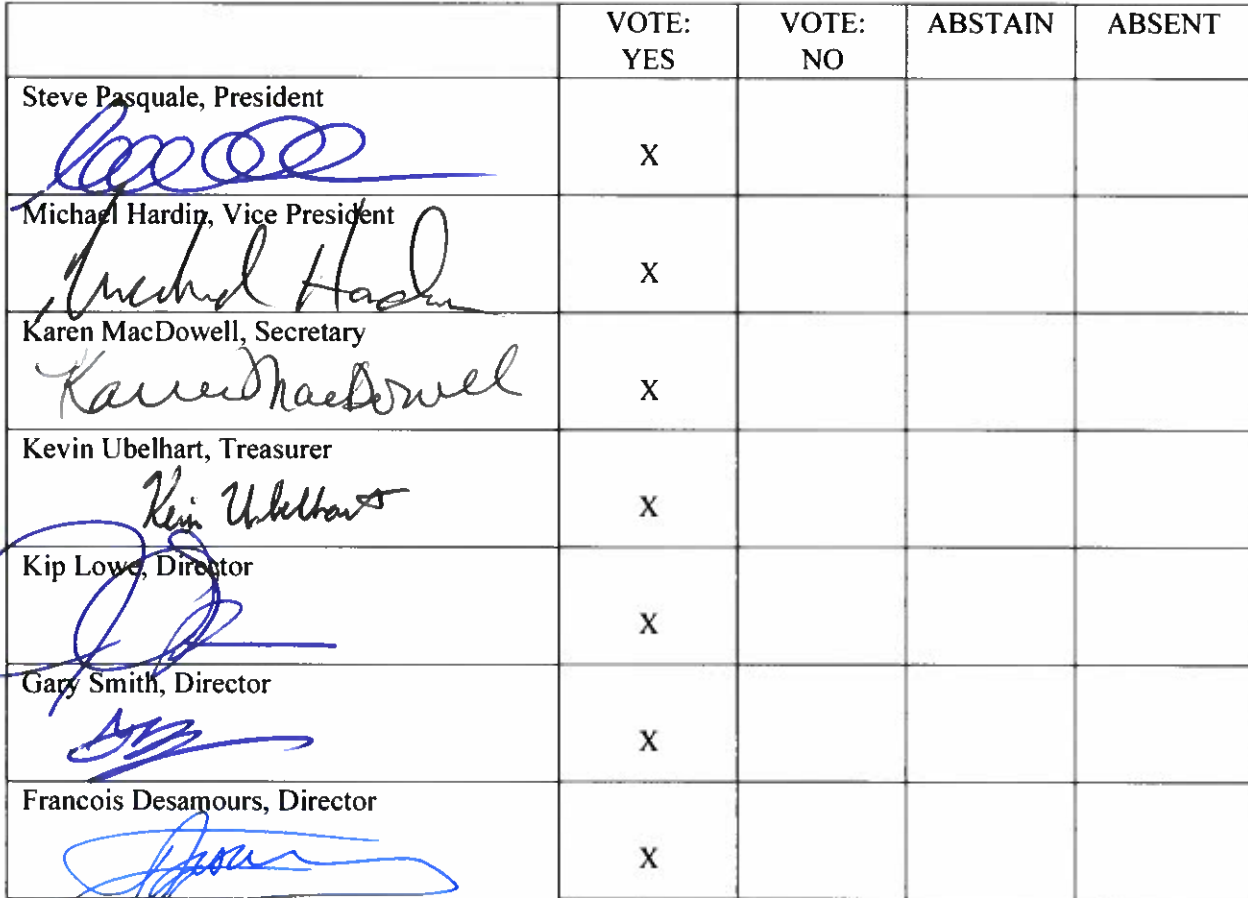 VOTE: YES VOTE: NO ABSTAIN ABSENT
Steve Pasquale, President
X
Michael Hardin, Vice President
Michael Hardin
X
Karen MacDowell, Secretary
Karen MacDowell
X
Kevin Ubelhart, Treasurer
Kevin Ubelhart
X
Kip Lowe, Director
X
Gary Smith, Director
X
Francois Desamours, Director
X